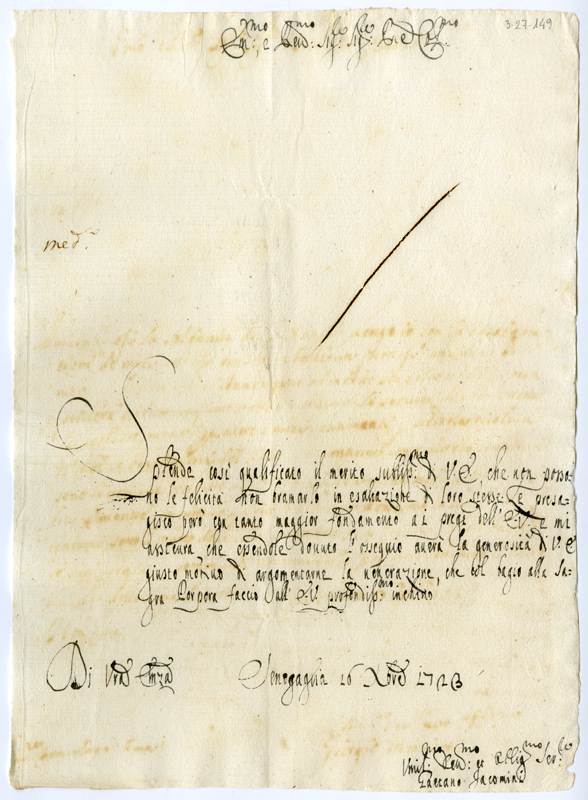 3-27-149
Em.mo, e Rev.mo Sig.re Sig.re Pne Col.mo
med.a
Splende così qualificato il merito subliss.mo di V. E, che non posso-
no le felicità non bramarlo in esaltazione di loro stesse. Le presa-
gisco però con tanto maggior fondamento a i pregi dell' E. V. e mi
assicura che essendole dovuto l'ossequio averà la generosità di V. E
giusto motivo di argomentarne la venerazione, che col bagio alla Sa-
gra Porpora faccio all' E. V. profondiss.mo inchino
Di Vra Emza Senegaglia 16 Xbre 1723
Umil.mo Dev.mo et Obblig.mo Ser.re
Gaetano Jacomini